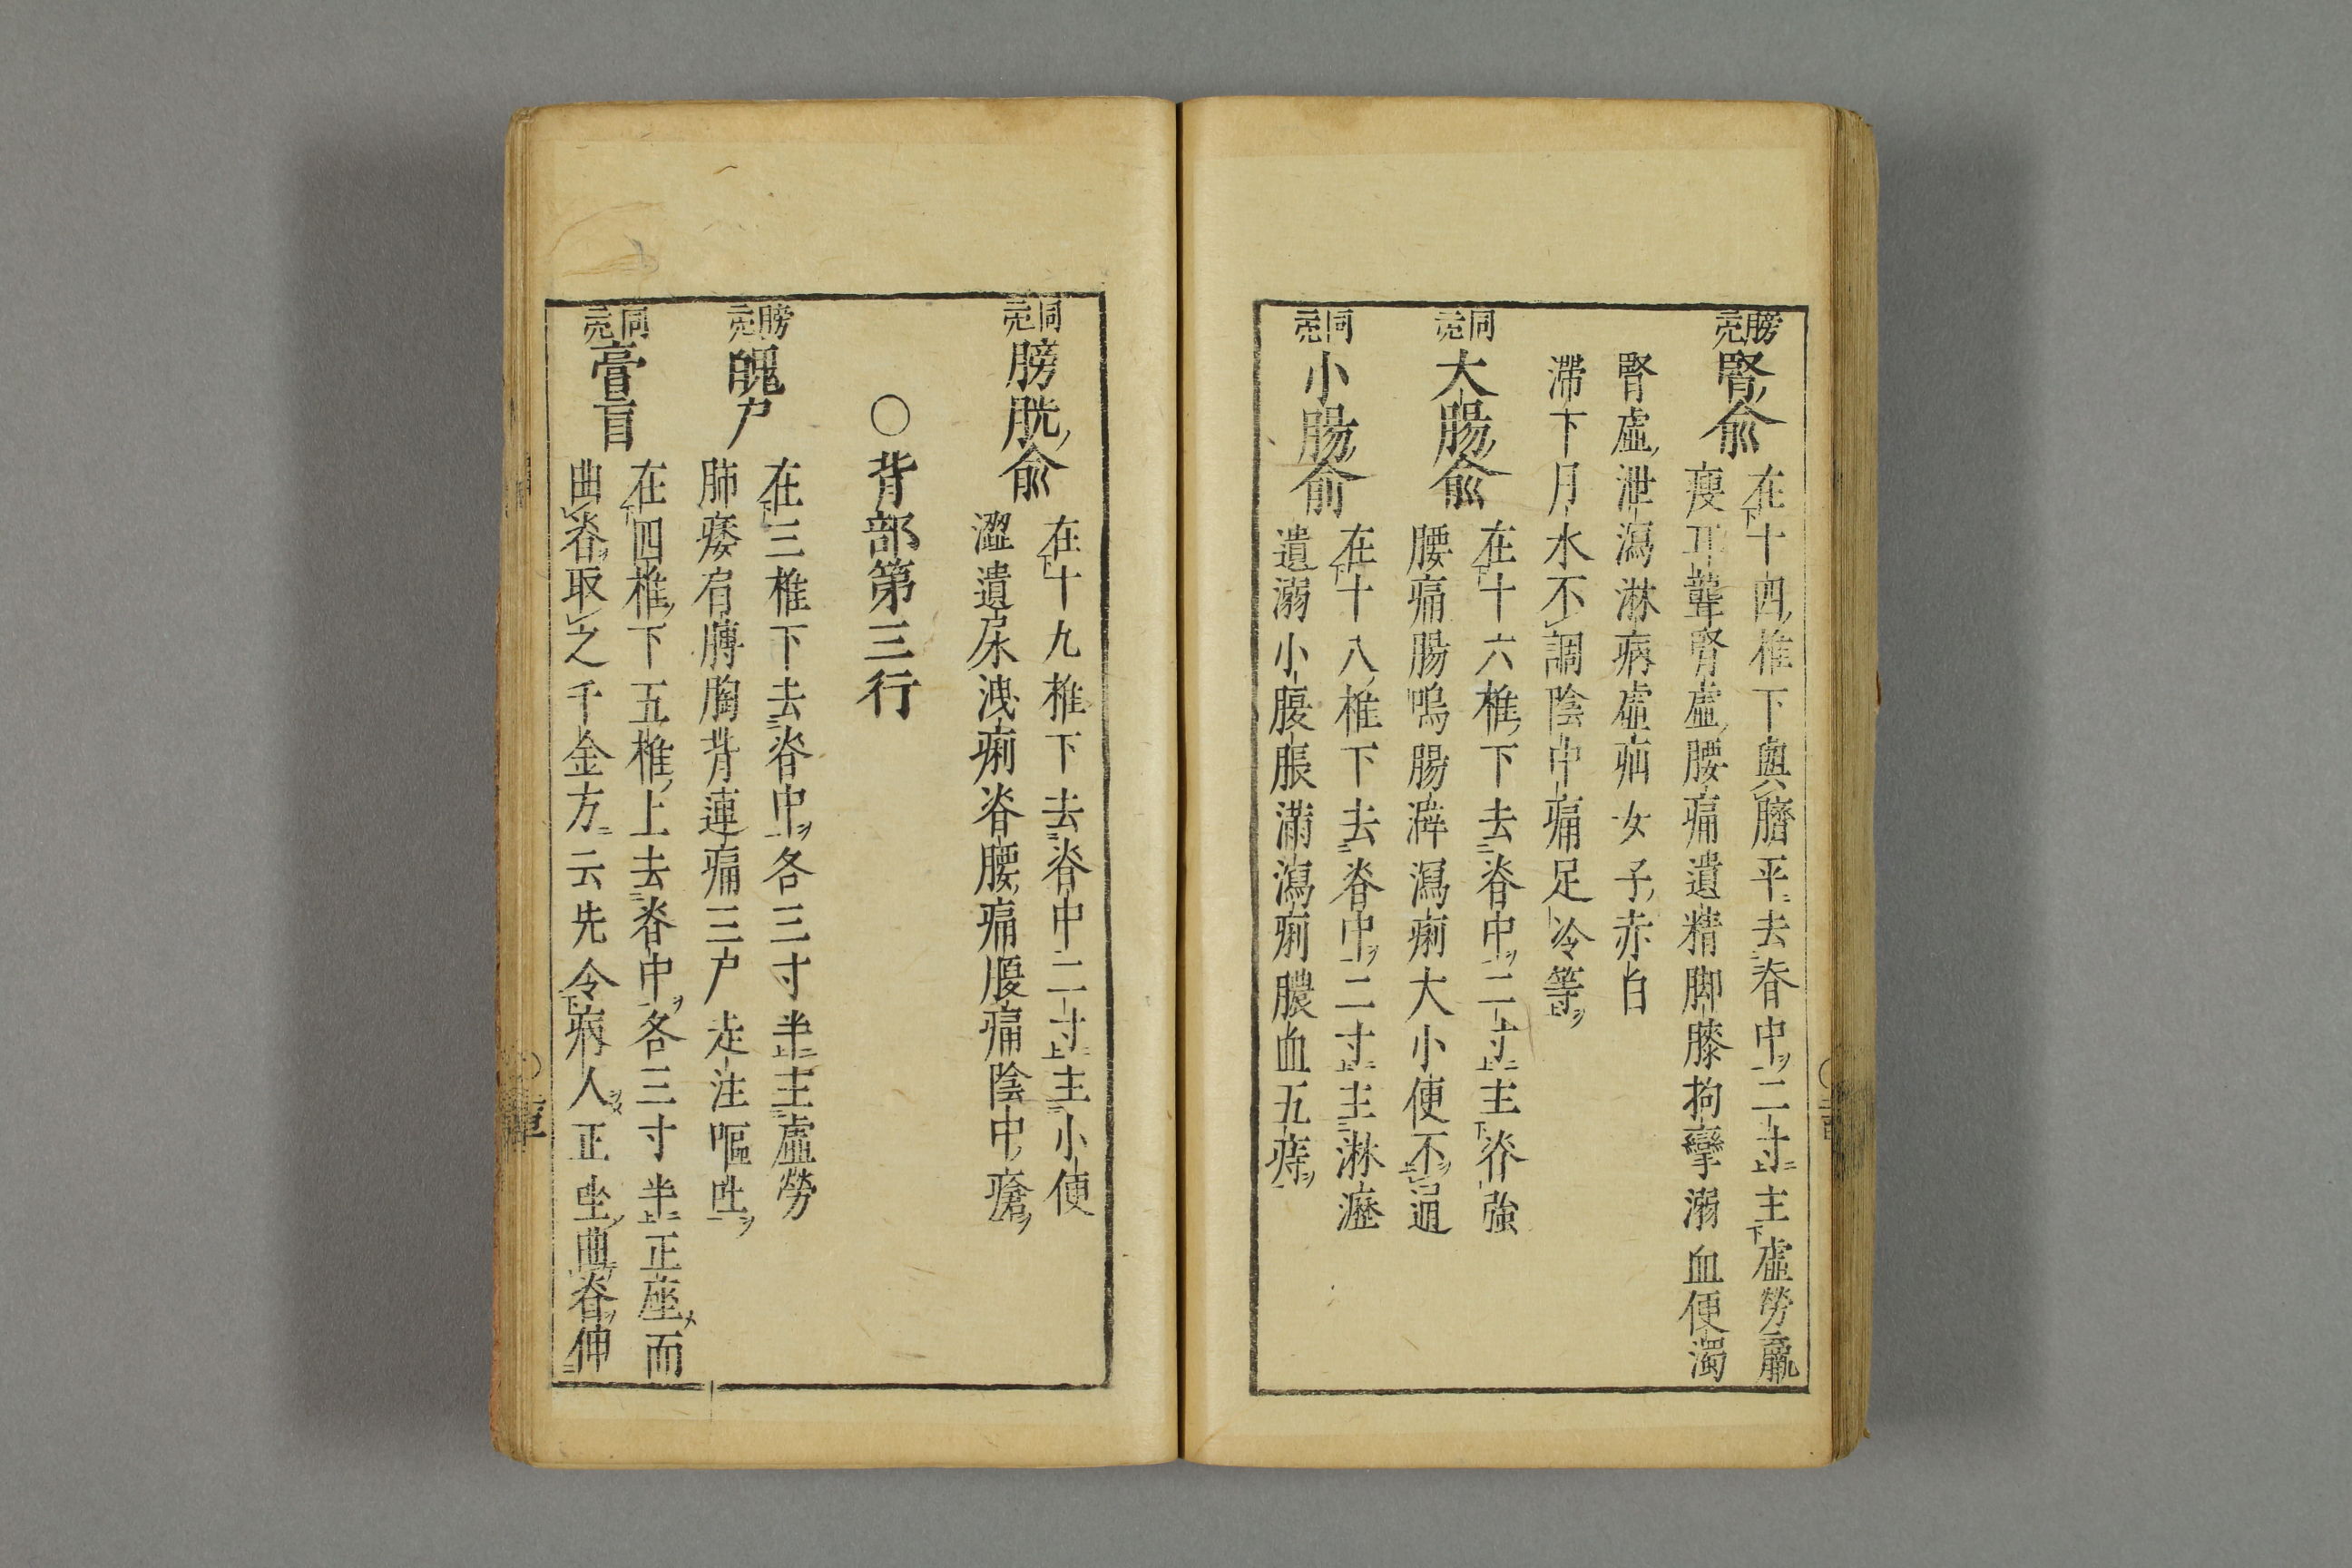 膀二壳
腎俞
在十四椎下與臍平去脊中二寸主虛勞羸
瘦耳聾腎虛腰痛遺精脚膝拘攣溺血便濁
腎虛泄瀉淋病虛疝女子赤白
滯下月水不調陰中痛足冷等
同二壳
大腸俞
在十六椎下去脊中二寸主脊強
腰痛腸鳴腸澼瀉痢大小便不通
同二壳
小腸俞
在十八椎下去脊中二寸主淋瀝
遺溺小腹脹滿瀉痢膿血五痔
同二壳
膀胱俞
在十九椎下去脊中二寸主小便
澀遺尿洩痢脊腰痛腹痛陰中瘡
○背部第三行
膀二壳
魄户
在三椎下去脊中各三寸半主虛勞
肺痿肩膊胸背連痛三户走注嘔吐
同二壳
膏肓
在四椎下五椎上去脊中各三寸半正座而
曲脊取之千金方云先令病人正坐曲脊伸